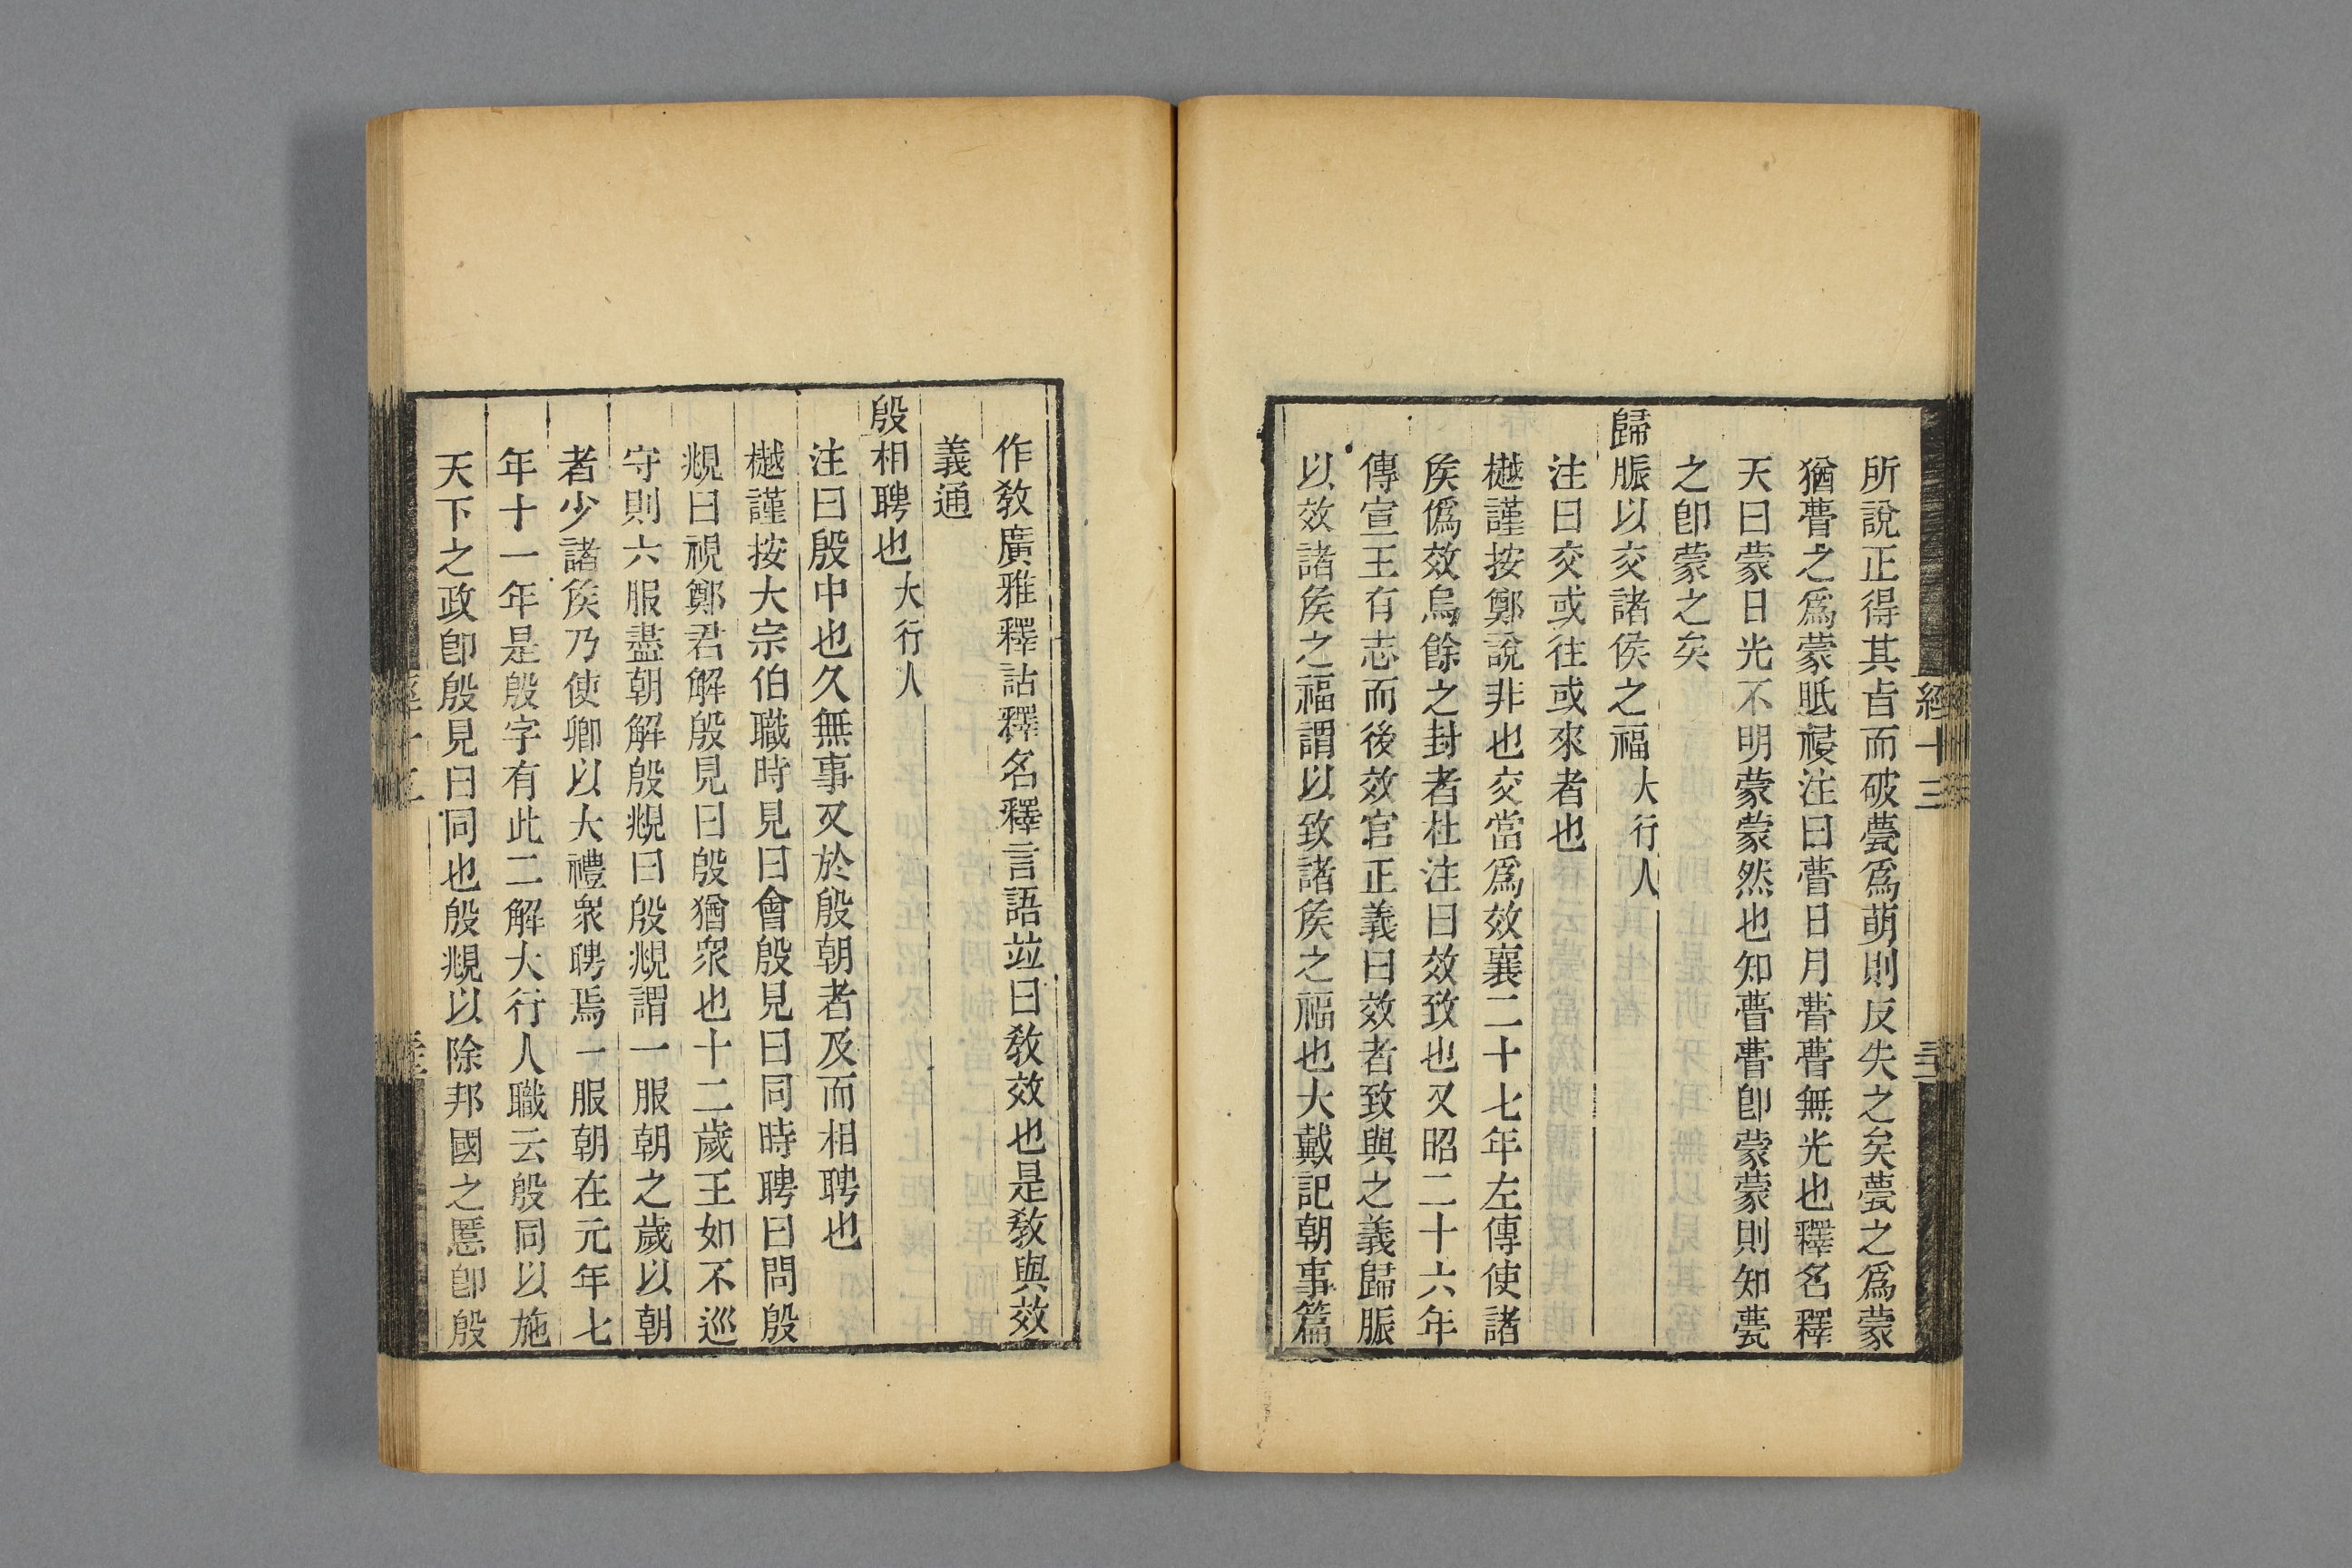 所說正得其㫖而破甍爲萌則反失之矣甍之爲蒙
猶瞢之爲蒙眡祲注曰瞢日月瞢瞢無光也釋名釋
天曰蒙日光不明蒙蒙然也知瞢瞢卽蒙蒙則知甍
之卽蒙之矣
歸脤以交諸侯之福大行人
注曰交或往或來者也
樾謹按鄭說非也交當爲效襄二十七年左傳使諸
矦僞效烏餘之封者杜注曰效致也又昭二十六年
傳宣王有志而後效官正義曰效者致與之義歸脤
以效諸矦之福謂以致諸矦之福也大戴記朝事篇
經十三
作敎廣雅釋詁釋名釋言語竝曰敎效也是敎與效
義通
殷相聘也大行人
注曰殷中也久無事又於殷朝者及而相聘也
樾謹按大宗伯職時見曰會殷見曰同時聘曰問殷
覜曰視鄭君解殷見曰殷猶衆也十二歲王如不巡
守則六服盡朝解殷覜曰殷覜謂一服朝之歲以朝
者少諸矦乃使卿以大禮衆聘焉一服朝在元年七
年十一年是殷字有此二解大行人職云殷同以施
天下之政卽殷見曰同也殷覜以除邦國之慝卽殷